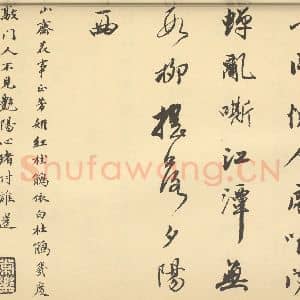 人
蟬亂嘶江潭無
數柳摇落夕陽
西
小齋花事正芳妍紅杜鵑依白杜鵑幾度
敲門人不見艷陽心緒付誰邊
Shufawang.CN